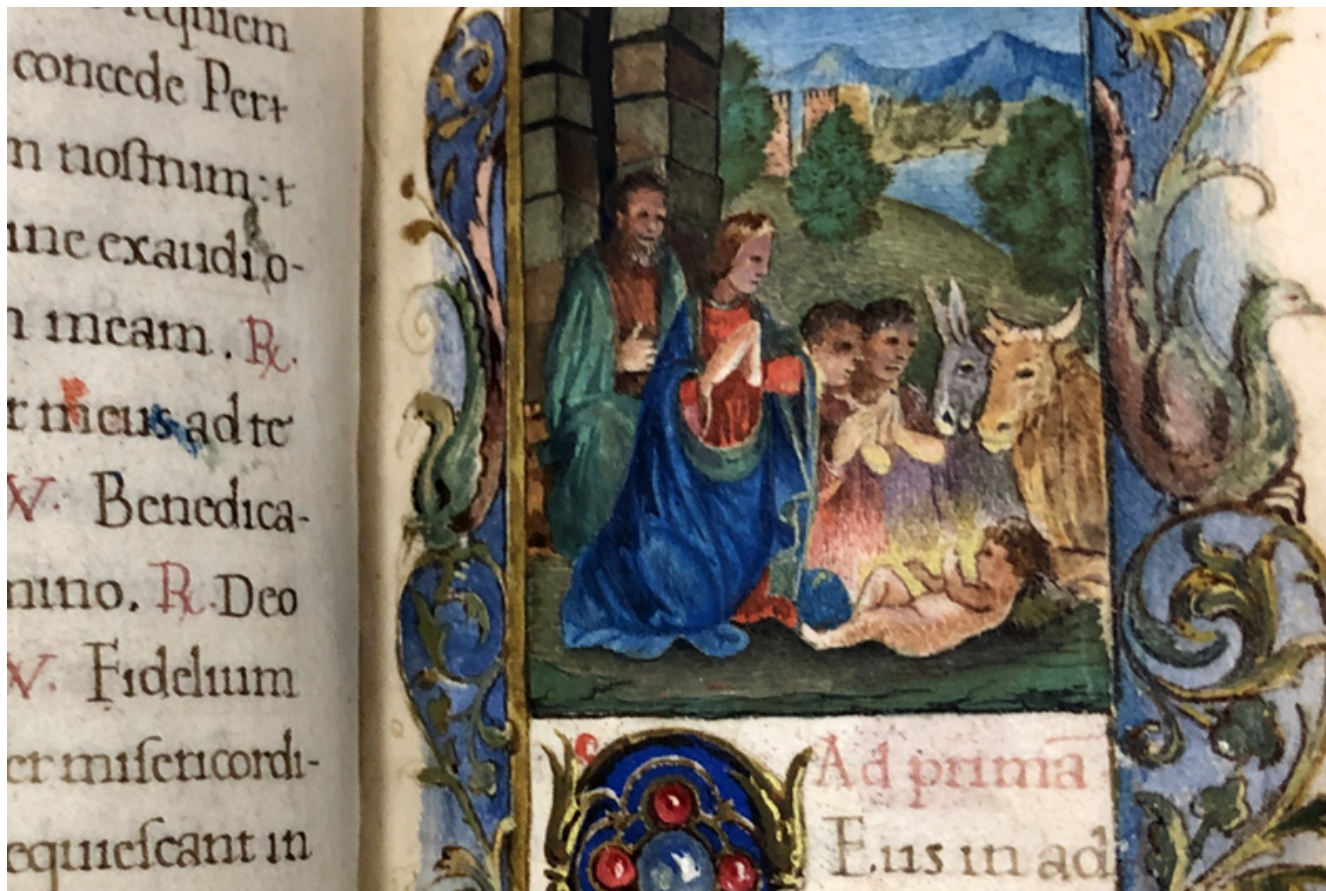 requiem
concede Per⁊
m noſtrum: ⁊
unc exaudi o-
n meam. ℟.
r meus ad te
℣. Benedica-
mino. ℟. Deo
℣. Fidelium
er miſericordi-
equieſcant in
Ad prima
Eus in ad